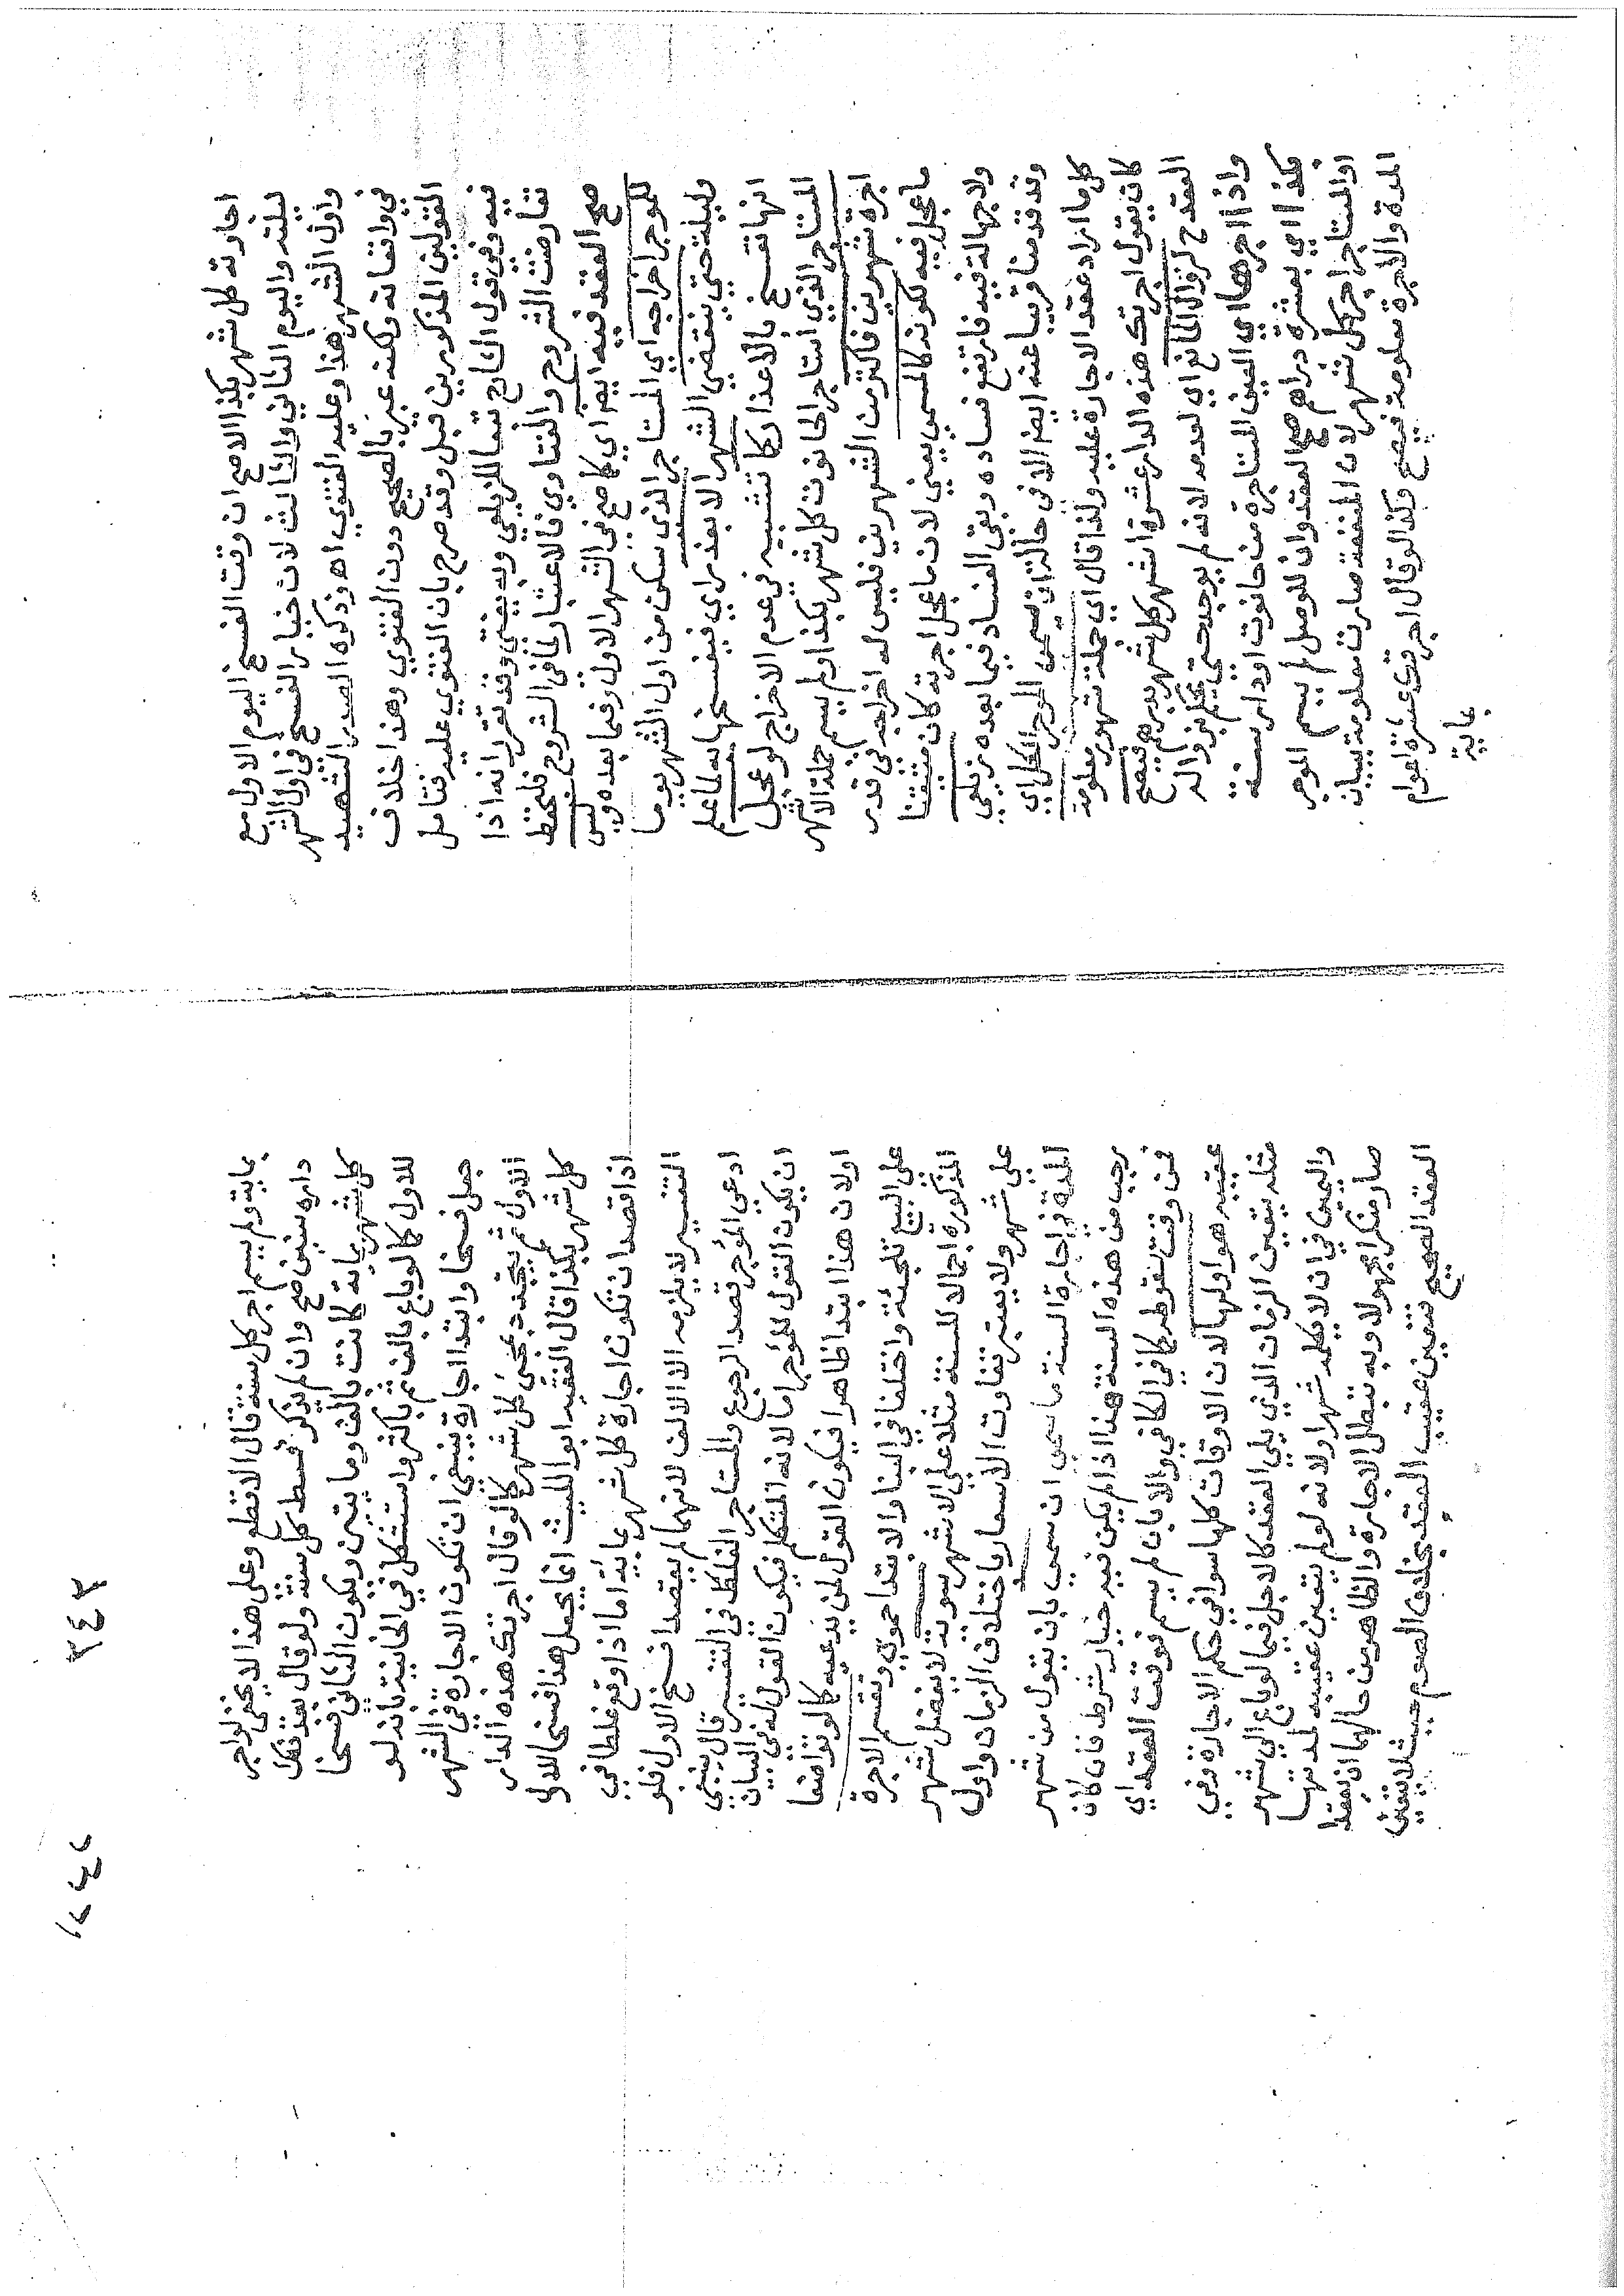 اجارته كل شهر بكذا الاصح ان وقت الفسخ اليوم الاول مع
ليلته واليوم الثاني والثالث لان خيار الفسخ في اول الشهر
واول الشهر هذا وعليه الفتوي اه وذكره الصدر الشهيد
في واقعاته ولكنه عبر بالصحيح دون الفتوي وهذا خلاف
القولين المذكورين قبل وقد صرح بان الفتوي عليه فتامل
فيه وفي قول الشارح تبعا للزيلعي وبه يفتي وقد تقرر انه اذا
تعارضت الشروح والفتاوي فالاعتبار لما في الشروح فليحفظ
صح العقد فيه ايضا اي كما صح في الشهر الاول وفيما بعده وليس
للموجر اخراجه اي المستاجر الذي سكن من اول الشهر يوما
وليلة حتي ينقضي الشهر الا بعذر اي فيفسخها به لما علم
انها تفسخ بالاعذار كما تشبيه في عدم الاخراج لو عجل
المستاجر الذي استاجر الحانوت كل شهر بكذا ولم يسم جملة الاشهر
اجرة شهرين فاكثر من الشهرين فليس له اخراجه في قدر
ما عجل فيه لكونه كالمسمي يعني لان ما عجل اجرته كان متيقنا
ولا جهالة فيه فارتفع فساده وبقي الفساد فيما بعده زيلعي
وقد قدمنا قريبا عنه ايضا الا في حالة ان يسمي الموجر الكل اي
كل ما اراد عقد الاجارة عليه ولذا قال اي جملة شهور معلومة
كان يقول اجرتك هذه الدار عشرة اشهر كل شهر بدرهم فيصح
العقد ح لزوال المانع اي لعدمه لانه لم يوجد حتي يحكم بزواله
واذا اجرها اي العين المستاجرة من حانوت او دار سنة
بكذا اي بعشرة دراهم صح العقد وان للوصل لم يسم الموجر
او المستاجر اجر كل شهر لان المنفعة صارت معلومة ببيان
المدة والاجرة معلومة فيصح وكذا لو قال اجرتك عشرة اعوام
بماية
بماية ولم يسم اجر كل سنة قال الاتقطع وعلي هذا لا يخفي لو اجر
داره سنتين صح وان لم يذكر قسط كل سنة ولو قال بعد ذلك
كل شهر بماية كانت بالف وما يتين ويكون الثاني فسخا
للاول كما لو باع بالف ثم باكثر واستشكل في الخانية بانه لو
جعل فسخا وابتدا اجارة ينبغي ان تكون الاجارة في الشهر
الاول ثم يتجدد بمجئ كل شهر كما لو قال اجرتك هذه الدار
كل شهر بكذا قال الفقيه ابو الليث انما يجعل هذا فسخا للاول
اذا قصدا ان تكون اجارة كل شهر بماية اما اذا وقع غلطا في
التفسير لا يلزمه الا الالف لانهما لم يقصدا فسخ الاول فلو
ادعي المؤجر قصد الرجوع والمستاجر الغلط في التفسير قال ينبغي
ان يكون القول للمؤجر اما لانه المتكلم فيكون القول له في البيان
اولان هذا ابتدا ظاهرا فيكون القول لمن يدعيه كما لو تواضعا
علي البيع تلجئة واختلفا في البنا والابتدا حموي وتقسم الاجرة
المذكورة اجمالا للسنة مثلا علي الاشهر بسوية لا بفضل شهر
علي شهر ولا يعتبر تفاوت الاسعار باختلاف الزمان واول
المدة في اجارة السنة ما سمي ان سمي بان يقول من شهر
رجب من هذه السنة هذا اذا لم يكن فيه خيار شرط فان كان
فمن وقت سقوطه كما في الكافي والا بان لم يسم فوقت العقد اي
عقيبه هو اولها لان الاوقات كلها سوا في حكم الاجارة وفي
مثله يتعين الزمان الذي يلي العقد كالاجل فيما لو باع الي شهر
واليمين في ان لا يكلمه شهرا ولانه لو لم يتعين عقيبه لمدتها
صار منكرا مجهولا وبه تبطل الاجارة والظاهر من حالهما ان يعقدا
العقد الصحيح فتعين عقيب العقد بخلاف الصوم حيث لا يتعين
٢٤٣
٢٤٢